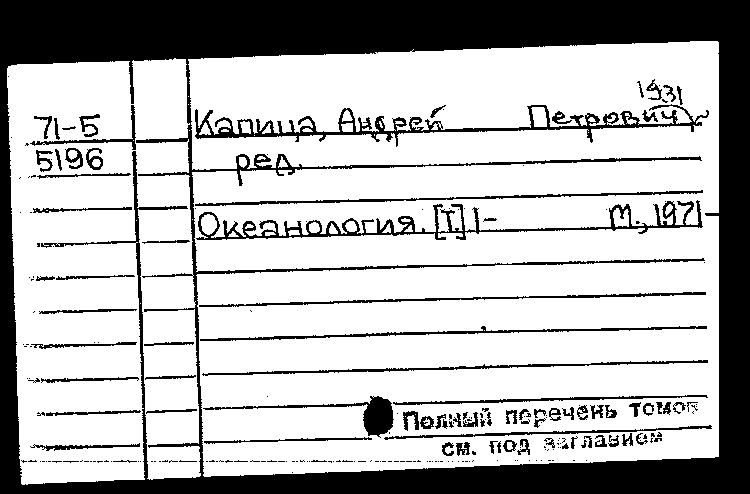 71-5 Капица, Андрей Петрович 1931-
5196 ред.
Океанология. [Т.] 1- М., 1971-
Полный перечень томов
см. под заглавием